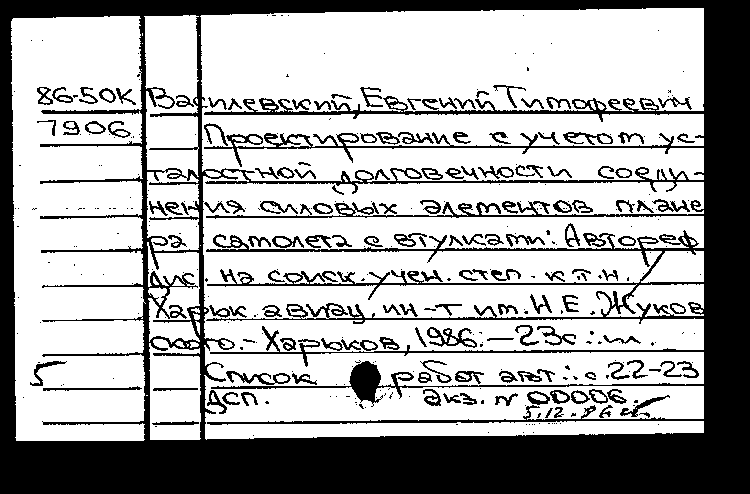 86-50К Василевский, Евгений Тимофеевич
7906 Проектирование с учетом ус-
талостной долговечности соеди-
нения силовых элементов плане
ра самолета с втулками: Автореф
дис. на соиск. учен. степ. к.т.н. /
Харьк. авиац. ин-т им. Н.Е. Жуков
ского.- Харьков, 1986.-23с.:ил.
5 Список работ авт.: с.22-23
ДСП. экз. № 00006.
5.12.86